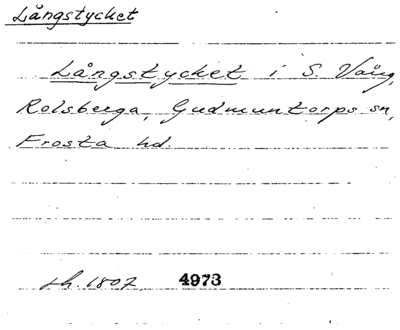 Långstycket
Långstycket i S. Vång,
Rolsberga, Gudmuntorps sn,
Frosta hd.
sh. 1807. 4973